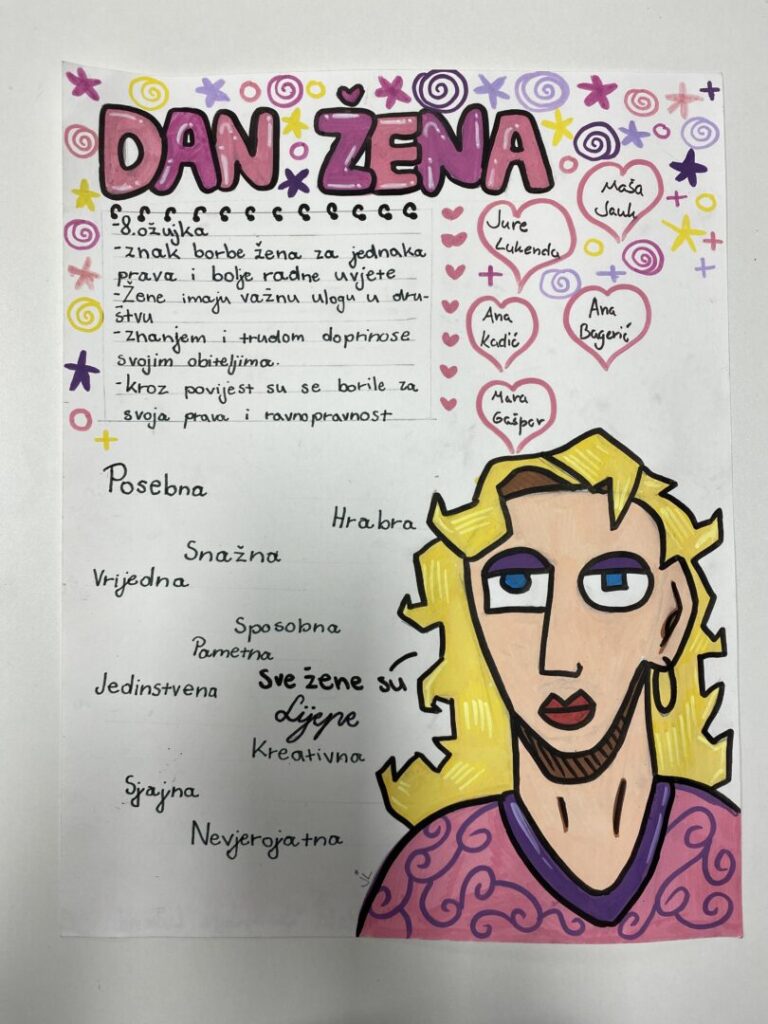 DAN ŽENA
-8.ožujka
-znak borbe žena za jednaka
prava i bolje radne uvjete
-Žene imaju važnu ulogu u dru-
štvu
-znanjem i trudom doprinose
svojim obiteljima.
-kroz povijest su se borile za
svoja prava i ravnopravnost
Maša
Jauk
Jure
Lukenda
Ana
Kadić
Ana
Bagerić
Mara
Gašpar
Posebna
Hrabra
Snažna
Vrijedna
Sposobna
Pametna
Jedinstvena
Sve žene su
Lijepe
Kreativna
Sjajna
Nevjerojatna